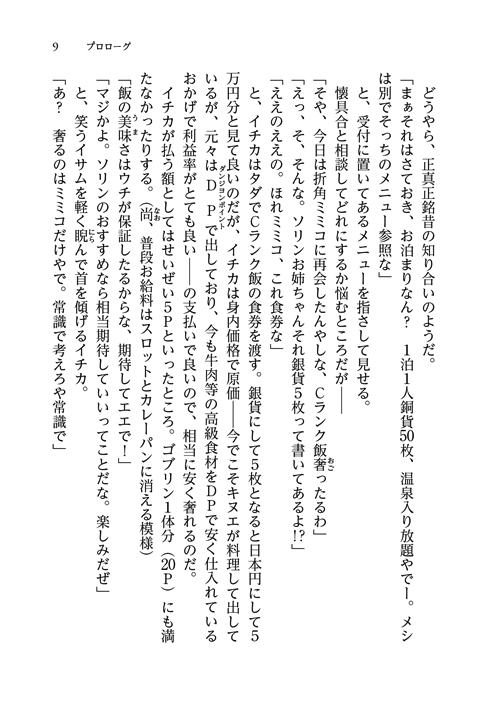 9 プロローグ
どうやら、正真正銘昔の知り合いのようだ。
「まぁそれはさておき、お泊まりなん？　１泊１人銅貨50枚、温泉入り放題やでー。メシ
は別でそっちのメニュー参照な」
と、受付に置いてあるメニューを指さして見せる。
懐具合と相談してどれにするか悩むところだが――
「そや、今日は折角ミミコに再会したんやしな、Ｃランク飯奢ったるわ」
「えっ、そ、そんな。ソリンお姉ちゃんそれ銀貨５枚って書いてあるよ!?」
「ええのええの。ほれミミコ、これ食券な」
と、イチカはタダでＣランク飯の食券を渡す。銀貨にして５枚となると日本円にして５
万円分と見て良いのだが、イチカは身内価格で原価――今でこそキヌエが料理して出して
いるが、元々はＤＰで出しており、今も牛肉等の高級食材をＤＰで安く仕入れている
おかげで利益率がとても良い――の支払いで良いので、相当に安く奢れるのだ。
イチカが払う額としてはせいぜい５Ｐといったところ。ゴブリン１体分（20Ｐ）にも満
たなかったりする。（尚、普段お給料はスロットとカレーパンに消える模様）
「飯の美味さはウチが保証したるからな、期待してエエで！」
「マジかよ。ソリンのおすすめなら相当期待していいってことだな。楽しみだぜ」
と、笑うイサムを軽く睨んで首を傾げるイチカ。
「あ？　奢るのはミミコだけやで。常識で考えろや常識で」